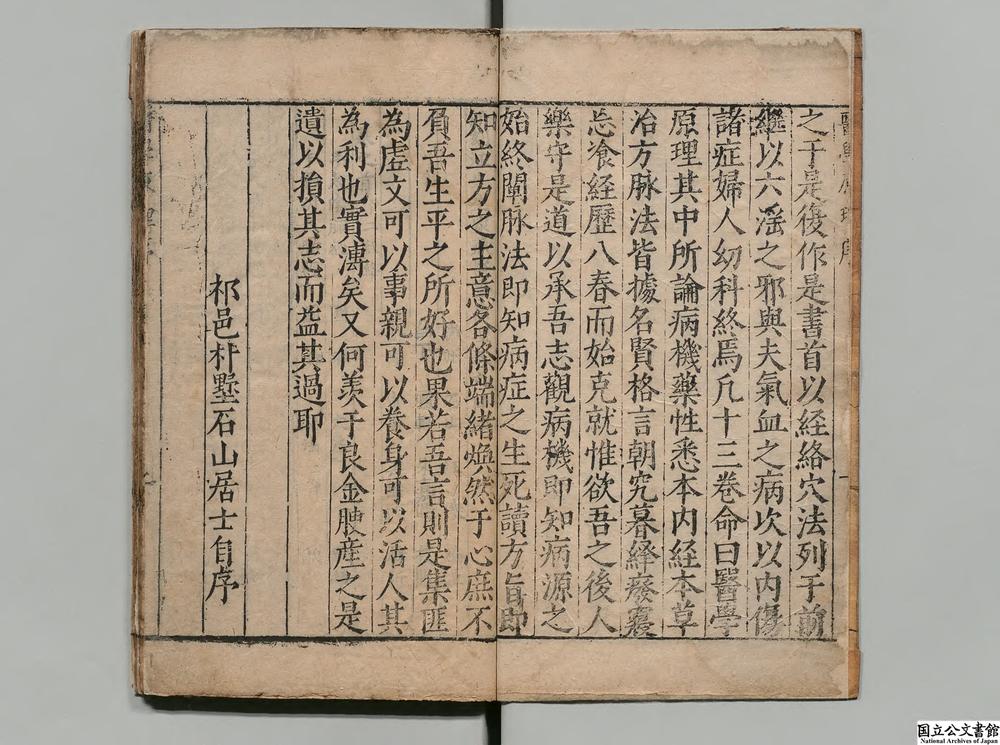 之于是復作是書首以経絡穴法列于前
継以六滛之邪與夫氣血之病次以内傷
諸症婦人幼科終焉凢十三卷命曰醫學
原理其中所論病機藥性悉本内経本草
冶方脉法皆據名賢格言朝究暮繹廢寢
忘飡経歷八春而始克就惟欲吾之後人
樂守是道以承吾志觀病機即知病源之
始終闡脉法即知病症之生死讀方旨即
知立方之主意各條端緒煥然于心庶不
負吾生平之所好也果若吾言則是集匪
為虛文可以事親可以養身可以活人其
為利也實溥矣又何羨于良金腴産之是
遺以損其志而益其過耶
祁邑朴墅石山居士自序
國立公文書館
National Archives of Japan